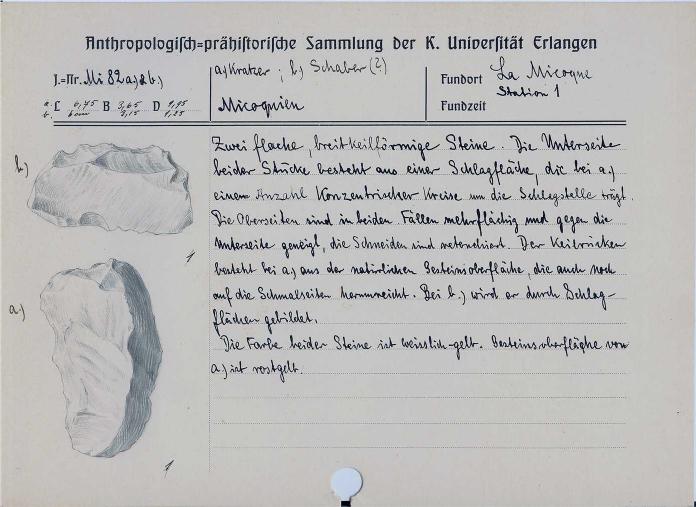 Anthropologisch=prähistorische Sammlung der K. Universität Erlangen
J.=Nr. Mi 82 a) & b)
a) Kratzer ; b) Schaber (?)
Fundort La Micoque
Station 1
a. L 6,75 B 3,65 D 1,95
b. 6 cm 3,15 1,25
Micoquien
Fundzeit
b)
a)
1
1
Zwei flache, breitkeilförmige Steine. Die Unterseite
beider Stücke besteht aus einer Schlagfläche, die bei a.)
einen Anzahl Konzentrischer Kreise um die Schlagstelle trägt.
Die Oberseiten sind in beiden Fällen mehrflächig und gegen die
Unterseite geneigt, die Schneiden sind retouchiert. Der Keilrücken
besteht bei a.) aus der natürlichen Gesteinsoberfläche, die auch noch
auf die Schmalseiten herumreicht. Bei b.) wird er durch Schlag-
flächen gebildet.
Die Farbe beider Steine ist weisslich-gelb. Gesteinsoberfläche von
a.) ist rostgelb.